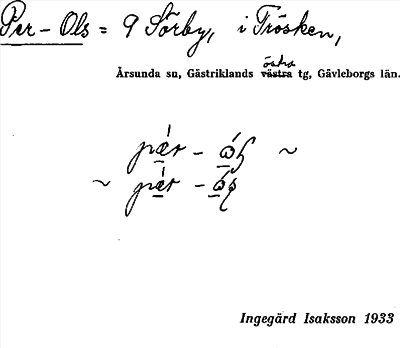 Per-Ols = 9 Sörby, i Trösken,
östra
Årsunda sn, Gästriklands västra tg, Gävleborgs län.
Ingegärd Isaksson 1933